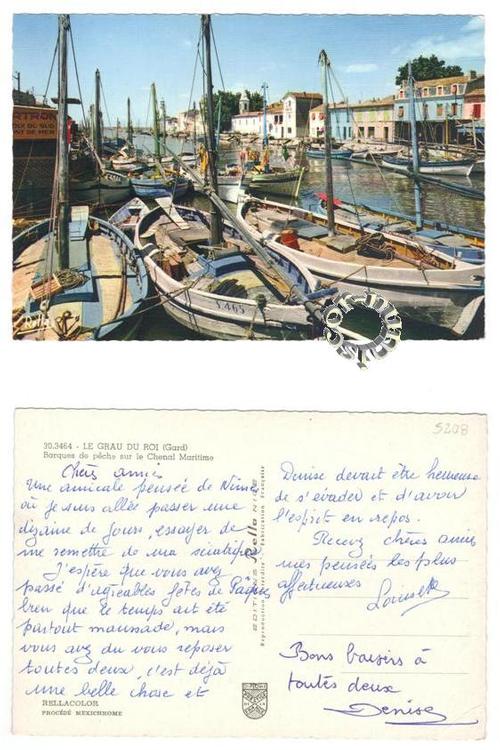 S 465
5208
30.3464 - LE GRAU DU ROI (Gard)
Barques de pêche sur le Chenal Maritime
Chers amis
Une amicale pensée de Nîmes
où je suis allée passer une
dizaine de jours, essayer de
me remettre de ma sciatique
J'espère que vous avez
passé d'agréables fêtes de Pâques
bien que le temps ait été
partout maussade, mais
vous avez du vous reposer
toutes deux, c'est déjà
une belle chose et
RELLACOLOR
PROCÉDÉ MEXICHROME
EDITIONS Rella NICE
Reproduction interdite - Fabrication Française
Denise devait être heureuse
de s'évader et d'avoir
l'esprit en repos.
Recevez chères amies
mes pensées les plus
affectueuses
Louisette
Bons baisers à
toutes deux
Denise